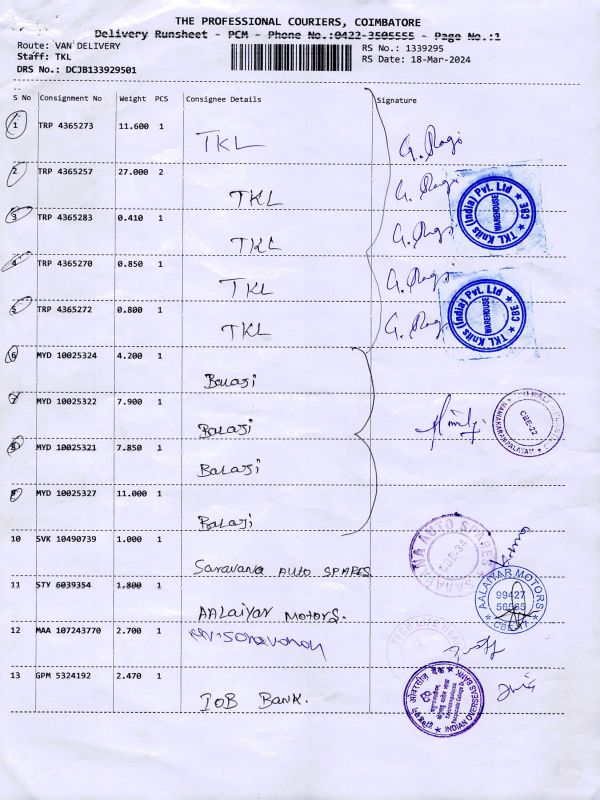 THE PROFESSIONAL COURIERS, COIMBATORE
Delivery Runsheet - PCM - Phone No.:0422-3505555 - Page No.:1
Route: VAN DELIVERY
RS No.: 1339295
Staff: TKL
RS Date: 18-Mar-2024
DRS No.: DCJB133929501
S No Consignment No Weight PCS Consignee Details Signature
1 TRP 4365273 11.600 1
TKL
G. Ragi
2 TRP 4365257 27.000 2
TKL
G. Ragi
TKL Knits (India) Pvt. Ltd ★ CBE ★
WAREHOUSE
3 TRP 4365283 0.410 1
TKL
G. Ragi
4 TRP 4365270 0.850 1
TKL
G. Ragi
5 TRP 4365272 0.800 1
TKL
G. Ragi
TKL Knits (India) Pvt. Ltd ★ CBE ★
WAREHOUSE
6 MYD 10025324 4.200 1
Balaji
7 MYD 10025322 7.900 1
Balaji
MANIAKARANPALAYAM
CBE-22
8 MYD 10025321 7.850 1
Balaji
9 MYD 10025327 11.000 1
Balaji
10 SVK 10490739 1.000 1
Saravana AUTO SPARES
SARAVANA AUTO SPARES
11 STY 6039354 1.800 1
AALaiyar Motors.
AALAIYAR MOTORS
99427
56565
12 MAA 107243770 2.700 1
13 GPM 5324192 2.470 1
IOB Bank.
INDIAN OVERSEAS BANK